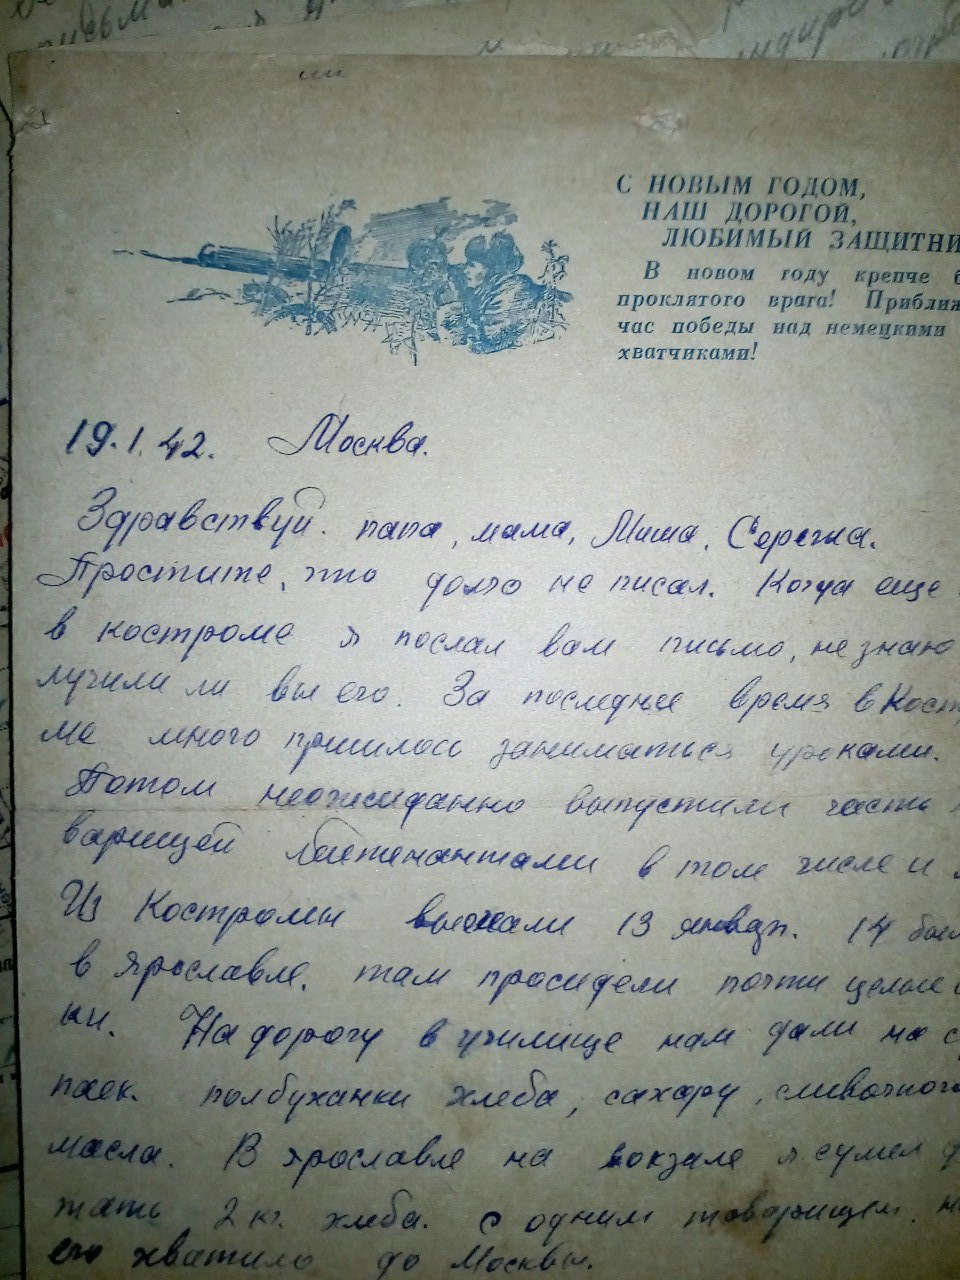 С НОВЫМ ГОДОМ,
НАШ ДОРОГОЙ,
ЛЮБИМЫЙ ЗАЩИТНИ
В новом году крепче б
проклятого врага! Приближ
час победы над немецкими
хватчиками!
19.1.42. Москва.
Здравствуй. папа, мама, Миша, Сережа.
Простите, что долго не писал. Когда еще
в костроме я послал вам письмо, не знаю
лучили ли вы его. За последнее время в Кост
ме много пришлось заниматься уроками.
Потом неожиданно выпустили часть
варищей лейтенантами в том числе и
Из Костромы выехали 13 январ. 14 были
в Ярославле, там просидели почти целые
ки. На дорогу в училище нам дали на с
паек. полбуханки хлеба, сахару, сливочного
масла. В Ярославле на вокзале я сумел д
тать 2 кг. хлеба. с одним товарищем. н
его хватило до Москвы.